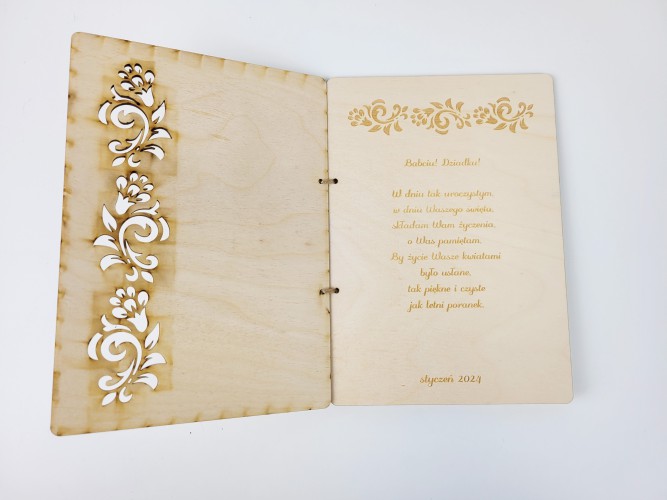 Babciu! Dziadku!
W dniu tak uroczystym,
w dniu Waszego święta,
składam Wam życzenia,
o Was pamiętam.
By życie Wasze kwiatami
było usłane,
tak piękne i czyste
jak letni poranek.
styczeń 2024